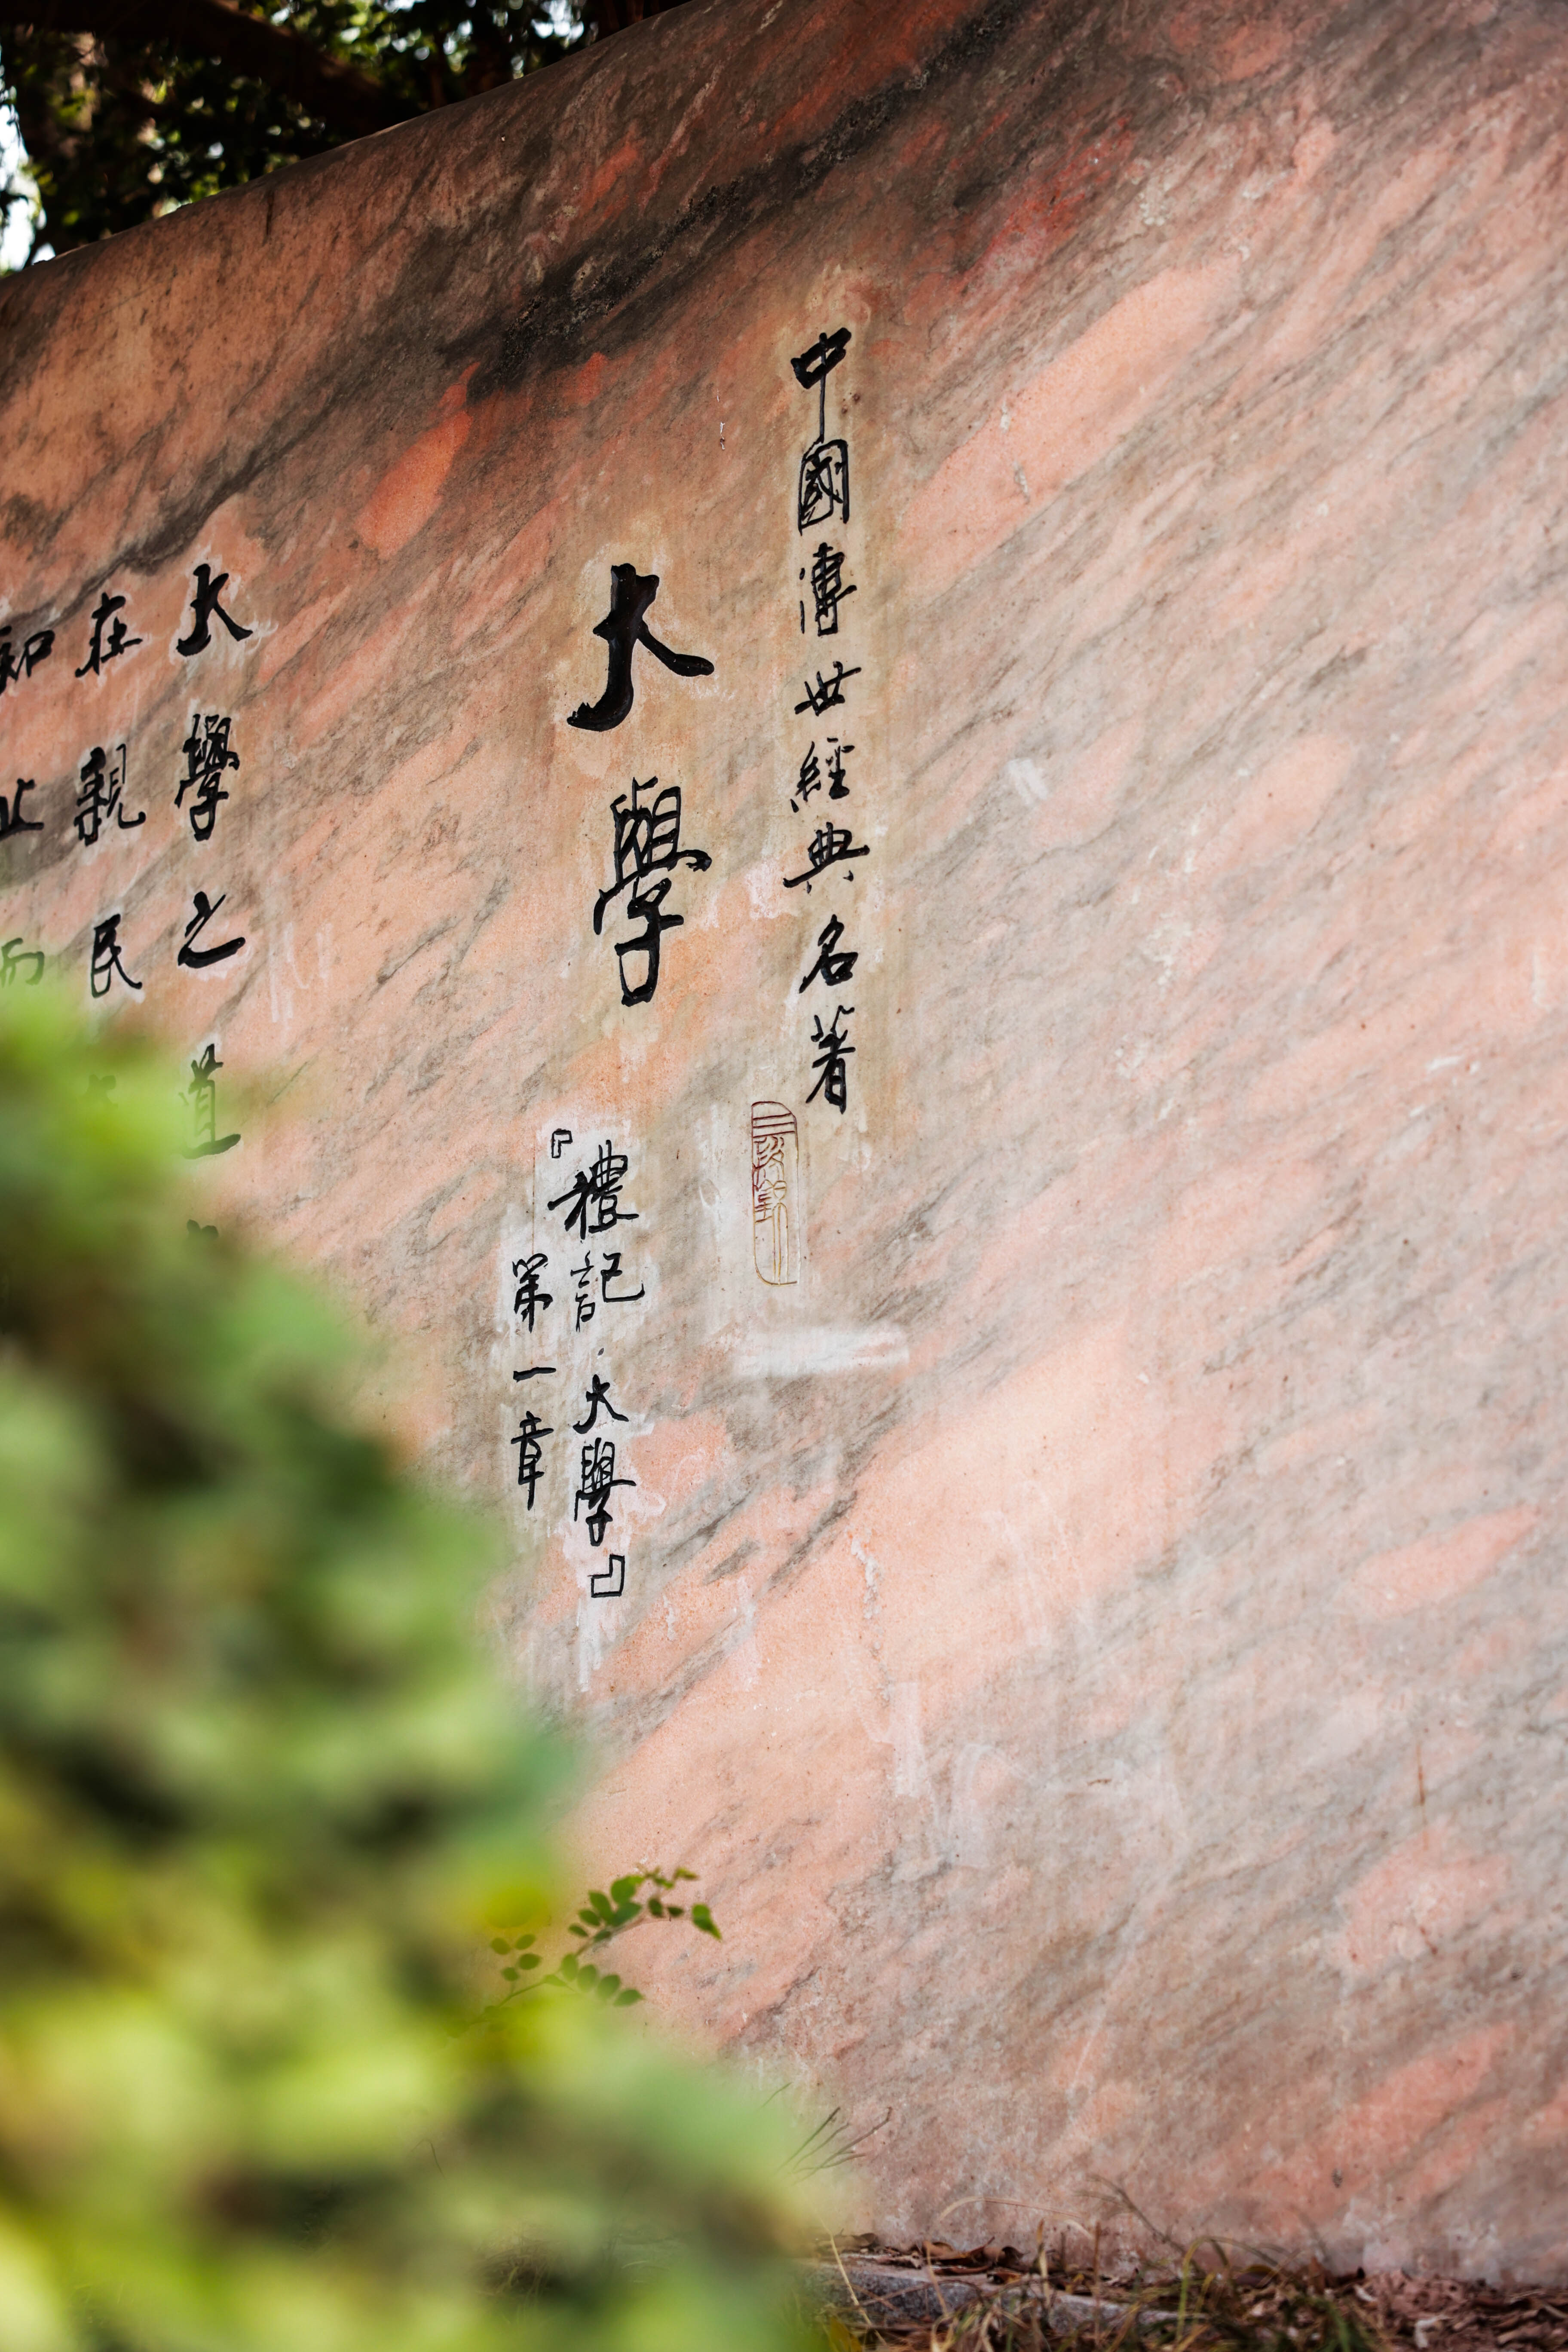 中國傳世經典名著
大學
『禮記·大學』
第一章
大學之道
在親民
知止而